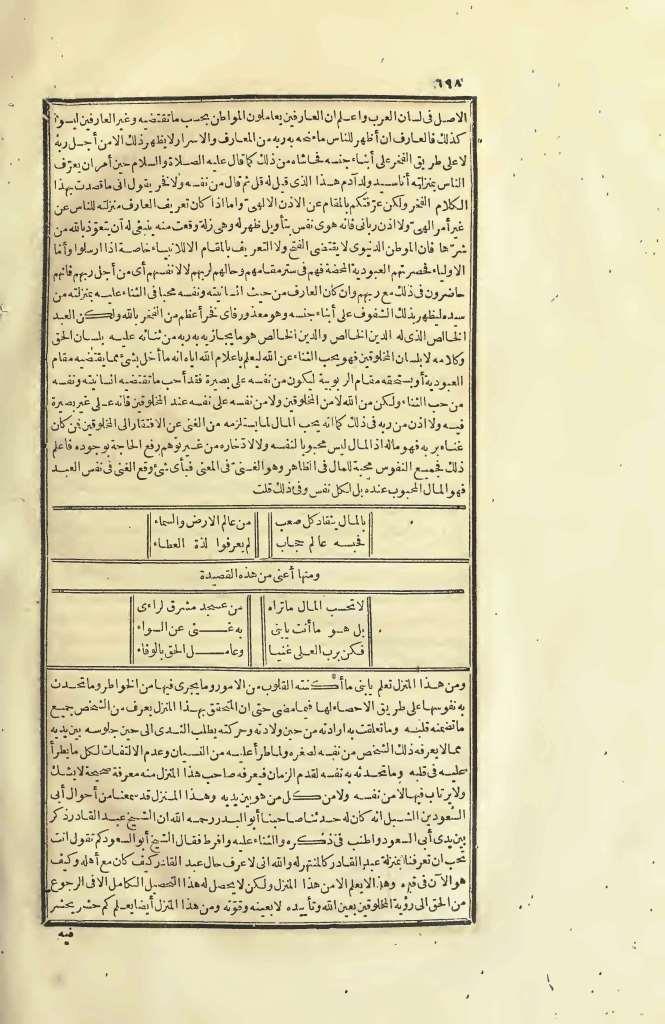 ٦٩٨
الاصل فى لسان العرب واعلم ان العارفين يعاملون المواطن بحسب ما تقتضيه وغير العارفين ليسوا
كذلك فالعارف ان أظهر للناس ما منحه به ربه من المعارف والاسرار لا يظهر ذلك الا من أجل ربه
لا على طريق الفخر على أبناء جنسه فحاشاه من ذلك كما قال عليه الصلاة والسلام حين أمر ان يعرّف
الناس بمنزلته أناسيد ولد آدم هذا الذى قيل له قل ثم قال من نفسه ولا فخر يقول انى ما قصدت بهذا
الكلام الفخر ولكن عرّفتكم بالمقام عن الاذن الالهىّ واما اذا كان تعريف العارف منزلته للناس عن
غير أمر الهىّ ولا اذن ربانى فانه هوى نفس بتأويل ظهر له وهى زلة وقعت منه ينبغى له أن يتعوّذ بالله من
شرّها فان الموطن الدنيوى لا يقتضى الفتح ولا التعريف بالمقام الا للانبياء خاصة اذا ارسلوا وأما
الاولياء فحصرتهم العبودية المحضة فهم فى ستر مقامهم وحالهم لربهم لا لانفسهم أى من أجل ربهم فانهم
حاضرون فى ذلك مع ربهم وان كان العارف من حيث انسانيته ونفسه محبا فى الثناء عليه بمنزلته من
سيده ليظهر بذلك الشفوف على أبناء جنسه وهو معذور فاى فخر أعظم من الفخر بالله ولكن العبد
الخالص الذى له الدين الخالص والدين الخالص هو ما يجازيه به ربه من ثنائه عليه بلسان الحق
وكلامه لا بلسان المخلوقين فهو يحب الثناء عن الله ليعلم باعلام الله اياه انه ما أخل بشئ مما يقتضيه مقام
العبودية أو يستحقه مقام الربوبية ليكون من نفسه على بصيرة فقد أحب ما تقتضيه انسانيته ونفسه
من حب الثناء ولكن من الله لا من المخلوقين ولا من نفسه على نفسه عند المخلوقين فانه على غير بصيرة
فيه ولا اذن من ربه فى ذلك كما انه يحب المال لما يستلزمه من الغنى عن الافتقار الى المخلوقين فمن كان
غناه بربه فهو ماله اذ المال ليس محبوبا لنفسه ولا لادّخاره من غير توّهم رفع الحاجة بوجوده فاعلم
ذلك فجميع النفوس محبة للمال فى الظاهر وهو الغنىّ فى المعنى فبأى شئ وقع الغنى فى نفس العبد
فهو المال المحبوب عنده بل لكل نفس وفى ذلك قلت
بالمال ينقاد كل صعب من عالم الارض والسماء
فحبسه عالم حجاب لم يعرفوا لذة العطاء
ومنها أعنى من هذه القصيدة
لا تحسب المال ما تراه من عسجد مشرق لراءى
بل هو ما أنت يابنى به غنى عن السواء
فكن برب العلى غنيا وعامل الحق بالوفاء
ومن هذا المنزل تعلم يابنى ما أكنته القلوب من الامور وما يجرى فيها من الخواطر وما تحدّث
به نفوسها على طريق الاحصاء لها فيما مضى حتى ان المتحقق بهذا المنزل يعرف من الشخص جميع
ما تضمنه قلبه وما تعلقت به ارادته من حين ولادته وحركته بطلب الثدى الى حين جلوسه بين يديه
مما لا يعرفه ذلك الشخص من نفسه لصغره ولما طرأ عليه من النسيان وعدم الالتفات لكل ما يطرأ
عليه فى قلبه وما تحدثه به نفسه لقدم الزمان فيعرفه صاحب هذا المنزل منه معرفة صحيحة لا يشك
ولا يرتاب فيها لا من نفسه ولا من كل من هو بين يديه وهذا المنزل قد سمعنا من أحوال أبى
السعود بن الشبل انه كان له حدثنا صاحبنا أبو البدر رحمه الله ان الشيخ عبد القادر ذكر
بين يدى أبى السعود واطنب فى ذكره والثناء عليه وافرط فقال الشيخ أبو السعود كم تقول انت
تحب ان تعرفنا بمنزلة عبد القادر كالمنتهر له والله انى لاعرف حال عبد القادر كيف كان مع أهله وكيف
هو الآن فى قبره وهذا لا يعلم الا من هذا المنزل ولكن لا يحصل له هذا التحصيل الكامل الا فى الرجوع
من الحق الى رؤية المخلوقين بعين الله وتأييده لا بعينه وقوّته ومن هذا المنزل أيضا يعلم كم حشر يحشر
فيه